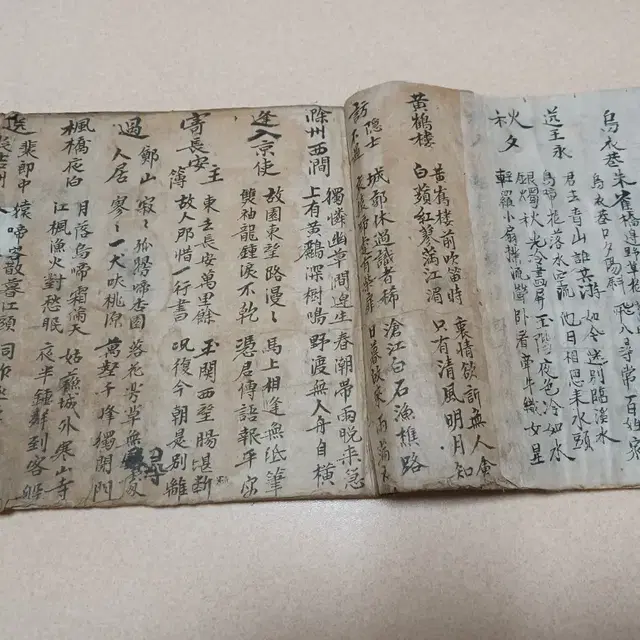 烏衣巷 朱雀橋邊野
烏衣巷口夕陽斜
飛入尋常百姓家
送王永
君去春山誰共游 如今送別臨溪水
鳥啼花落水空流 他日相思來水頭
秋夕
銀燭秋光冷畫屏 玉階夜色冷如水
輕羅小扇撲流螢 臥看牽牛織女星
黃鶴樓
黃鶴樓前吹笛時 衷情欲訴無人會
白蘋紅蓼滿江湄 只有清風明月知
訪隱士不遇
城郭休過識者稀 滄江白石漁樵路
日暮歸來雨滿
滁州西澗
獨憐幽草澗邊生 春潮帶雨晚來急
上有黃鸝深樹鳴 野渡無人舟自橫
逢入京使
故園東望路漫〻 馬上相逢無紙筆
雙袖龍鍾淚不乾 憑君傳語報平安
寄長安主簿
東去長安萬里餘 玉關西望腸堪斷
故人那惜一行書 況復今朝是別離
過鄭山人居
寂〻孤鶯啼杏園 落花芳草無尋處
寥〻一犬吠桃源 萬壑千峰獨閉門
楓橋夜泊
月落烏啼霜滿天 姑蘇城外寒山寺
江楓漁火對愁眠 夜半鍾聲到客船
送裴郎中
猿啼客散暮江頭